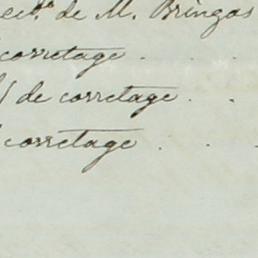 de M. Bringas
corretage
de corretage
corretage